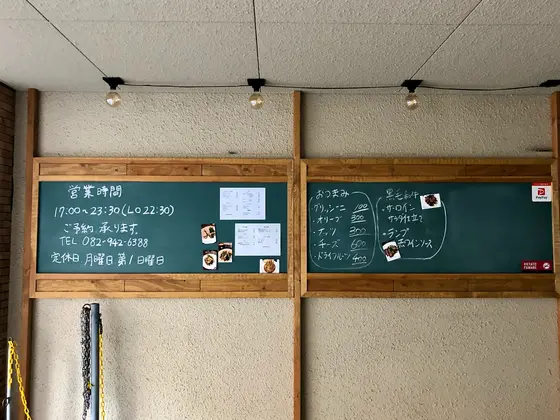 営業時間
17:00~23:30(LO 22:30)
ご予約 承ります
TEL 082-942-6388
定休日 月曜日 第1日曜日
おつまみ
・グリッシーニ 100
・オリーブ 300
・ナッツ 300
・チーズ 600
・ドライフルーツ 400
黒毛和牛
・サーロイン
サラダ仕立て
・ランプ
赤ワインソース
PayPay